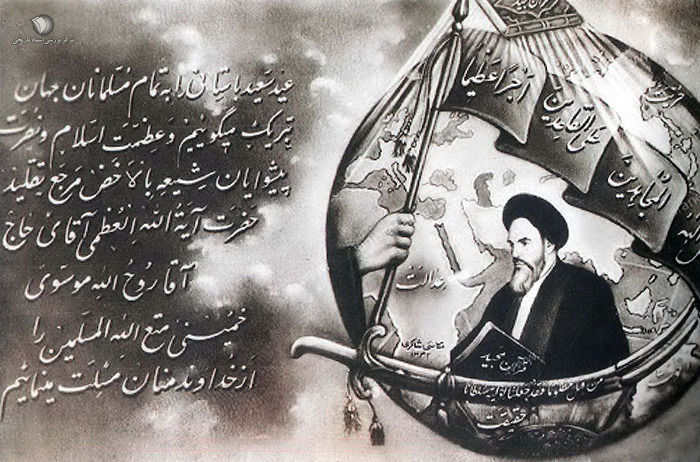 مرکز بررسی اسناد تاریخی
عید سعید باستانی را به تمام مسلمانان جهان
تبریک میگوئیم و عظمت اسلام و نصرت
پیشوایان شیعه بالاخص مرجع تقلید
حضرت آیة الله العظمی آقای حاج
آقا روح الله موسوی
خمینی متع الله المسلمین را
از خداوند منان مسئلت مینمائیم
اجرا عظیما
علی القاعدین
المجاهدین
الله
عدالت
عکاسی شاکری
۱۳۴۲
قرآن مجید
من قتل مظلوما فقد جعلنا لولیه سلطانا
حقیقت